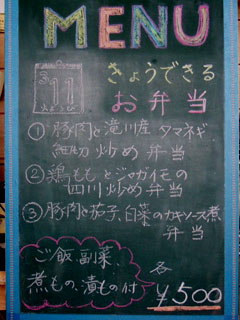 MENU
3
11
きょうできる
お弁当
① 豚肉と滝川産 タマネギ
細切 炒め 弁当
② 鶏ももとジャガイモの
四川 炒め 弁当
③ 豚肉と茄子、白菜のカキソース煮
弁当
ご飯、副菜、
煮もの、漬もの付
各
¥500